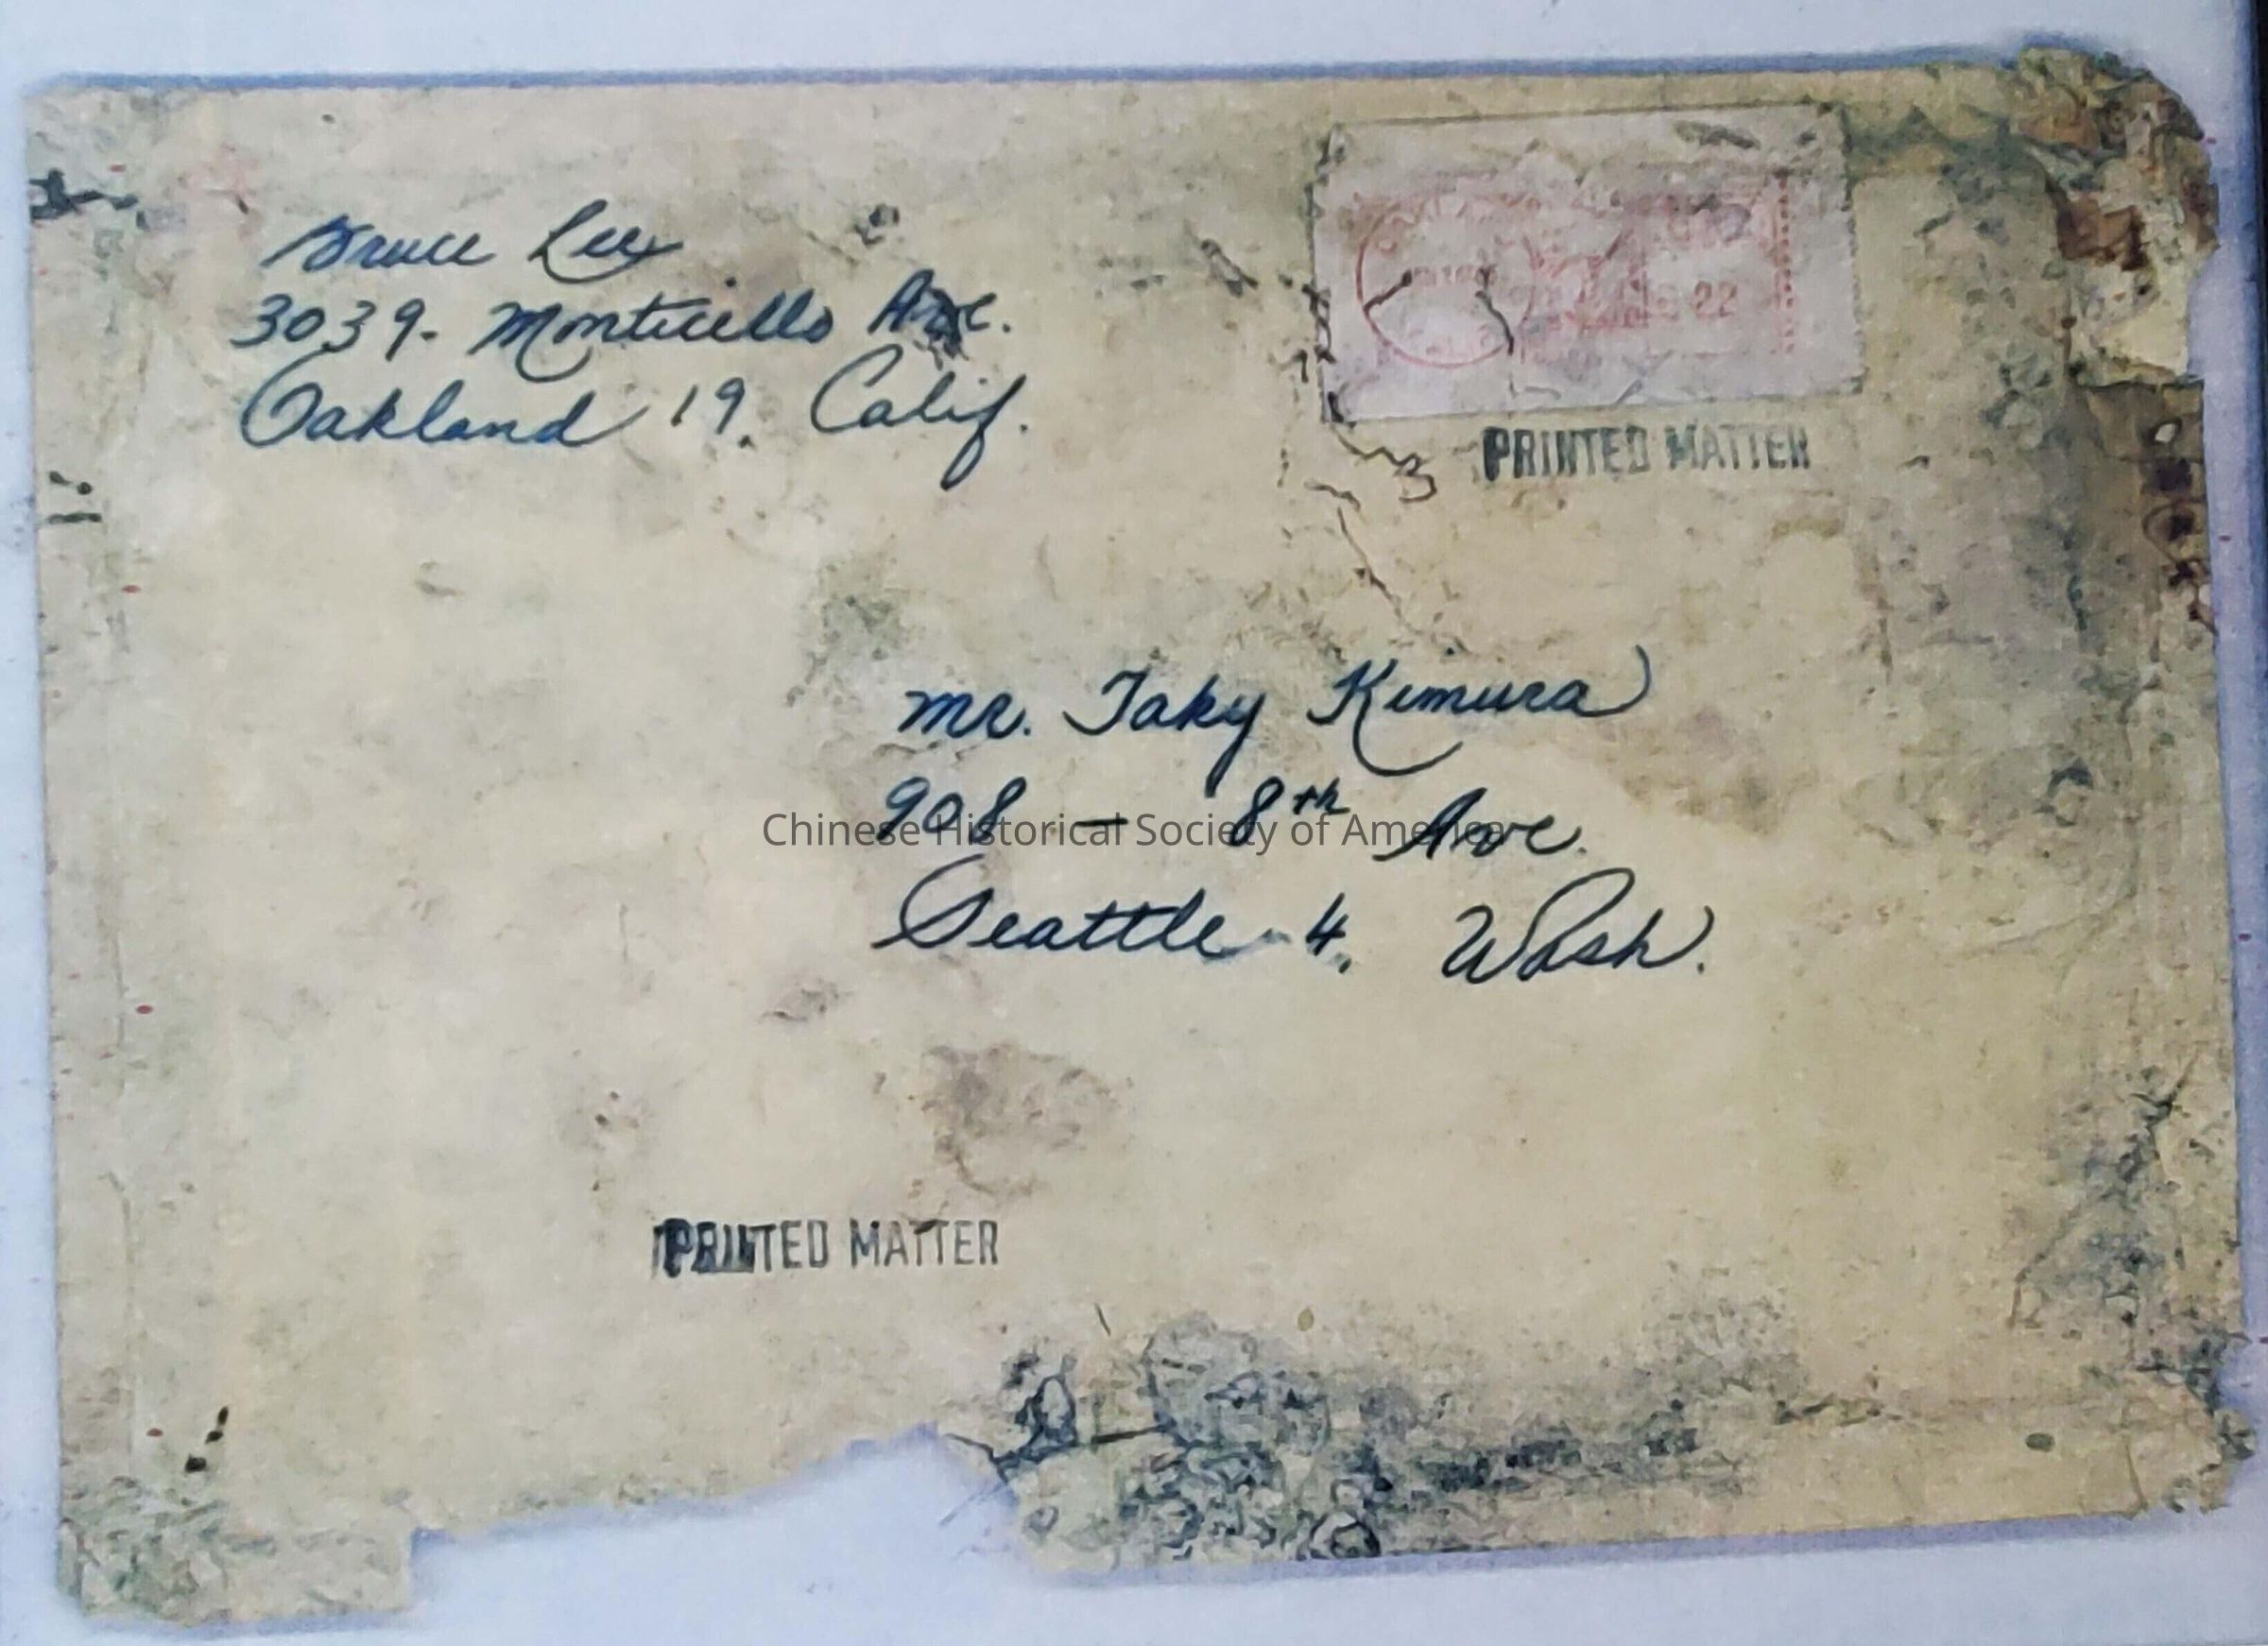 Bruce Lee
3039- Monticello Ave.
Oakland 19, Calif.
22
PRINTED MATTER
Mr. Taky Kimura
908 — 8th Ave.
Chinese Historical Society of America
Seattle 4, Wash.
PRINTED MATTER